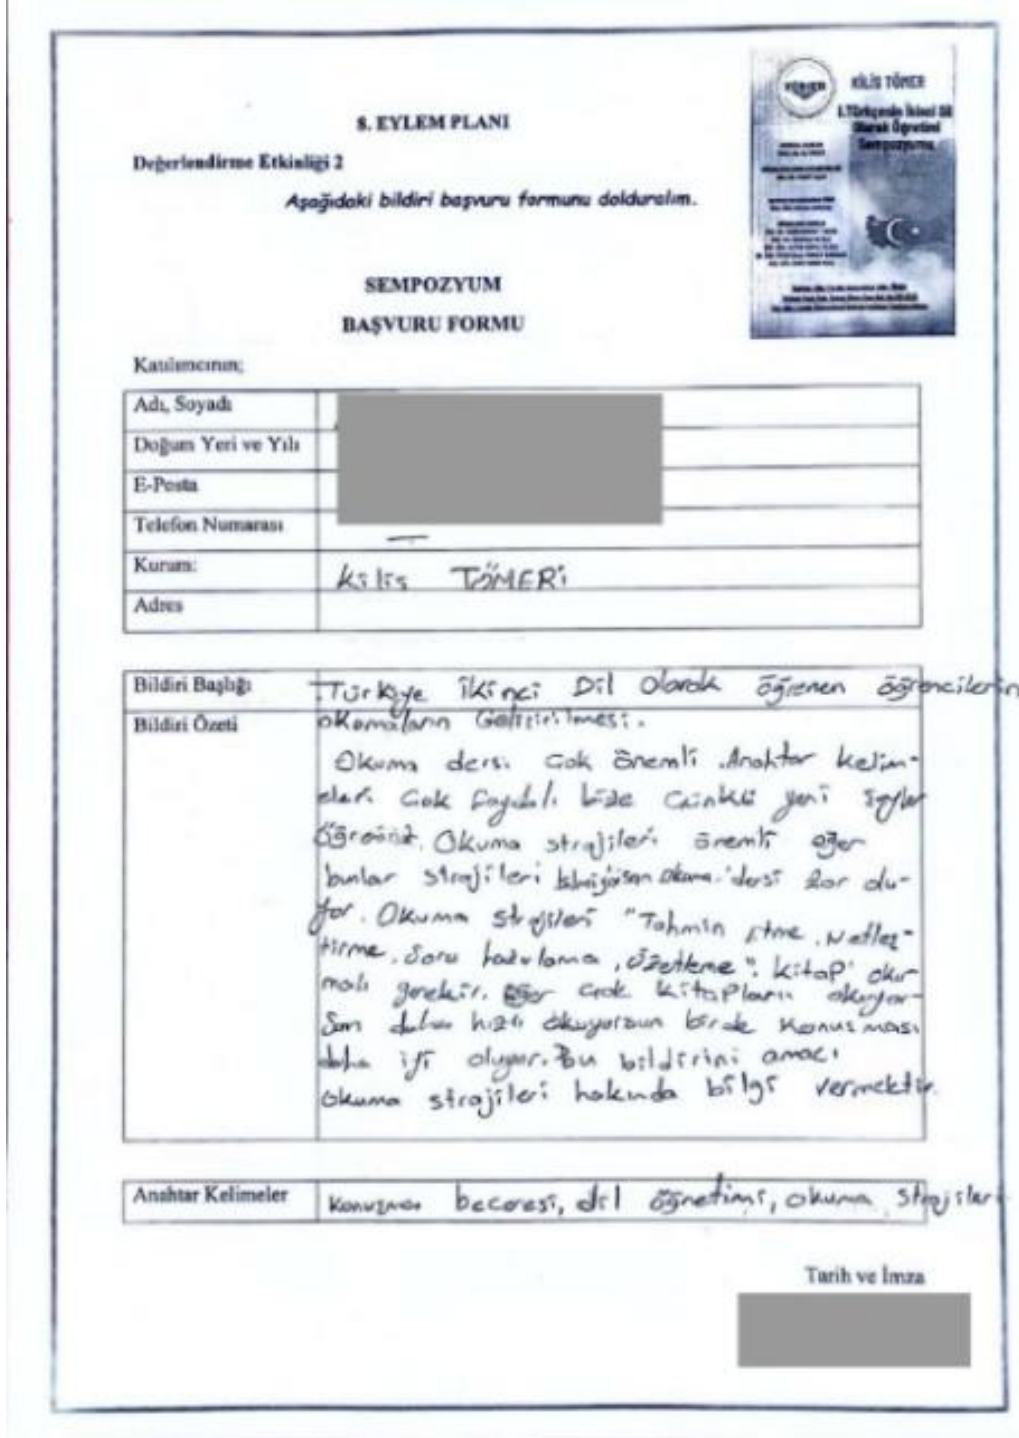 8. EYLEM PLANI
KİLİS TÖMER
I.Türkçenin İkinci Dil
Olarak Öğretimi
Sempozyumu
Değerlendirme Etkinliği 2
Aşağıdaki bildiri başvuru formunu dolduralım.
SEMPOZYUM
BAŞVURU FORMU
Katılımcının;
Adı, Soyadı
Doğum Yeri ve Yılı
E-Posta
Telefon Numarası
Kurum: Kilis TÖMERİ
Adres
Bildiri Başlığı Türkiye ikinci Dil Olarak öğrenen öğrencilerin
Bildiri Özeti okumaların Geliştirilmesi.
Okuma dersi Çok önemli .Anahtar kelim-
eleri Çok faydalı bize Çünkü yeni şeyler
Okuma strajileri önemli eğer
bunlar strajileri dersi zor olu-
yor. Okuma strajileri "Tahmin etme, Netleş-
tirme, Soru hazırlama, özetleme". kitap oku-
malı gerekir. Eğer Çok kitapların okuyor-
San daha hızlı okuyorsun birde konusması
daha iyi oluyor. Bu bildirini amacı
okuma strajileri hakında bilgi vermektir.
Anahtar Kelimeler Konuşma beceresi, dil öğretimi, okuma strajileri
Tarih ve İmza